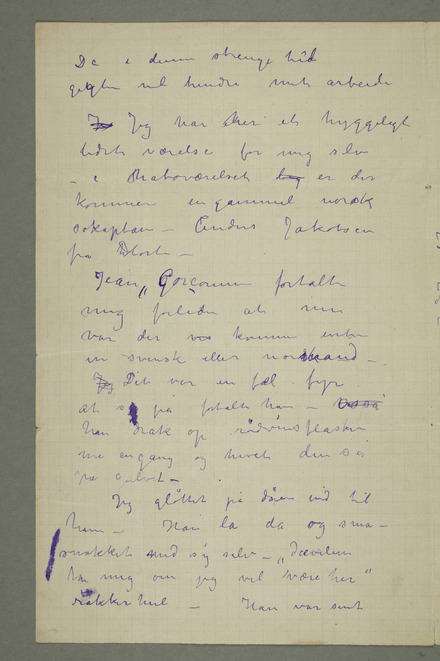 De i denne strenge tid
gigten vil hindre mit arbeide
Jeg Jeg har her et hyggeligt
lidet værelse for mig selv
– i naboværelset er der
kommen en gammel norsk
søkaptan – Anders Jakobsen
fra
Jean „ fortalte
mig forleden at nu
var der kommen enten
en svensk eller norsk mand –
Jeg Det var en fæl fyr
at se på fortalte han – også
han drak op rødvinsflasken
me en gang og hivet den så
på gulvet –
Jeg gløttet på døren ind til
ham – Han la da og sma–
snakket med sig selv – „Dævelen
ta mig om jeg vil være her"
rakkerhul – Han var sint